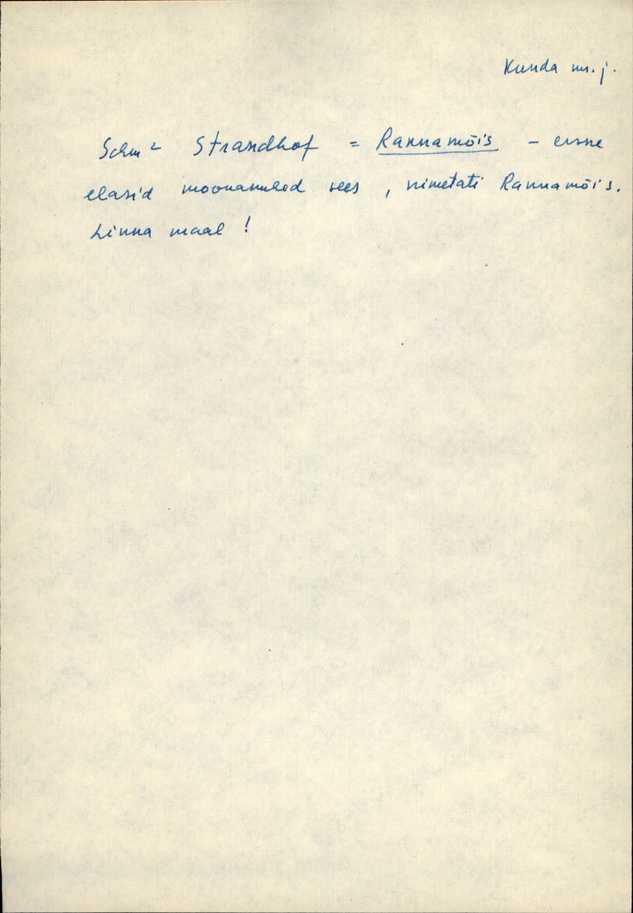 Kunda m. j.
Schm² Strandhof = Rannamõis – enne
elasid moonamehed sees, nimetati Rannamõis.
Linna maal!